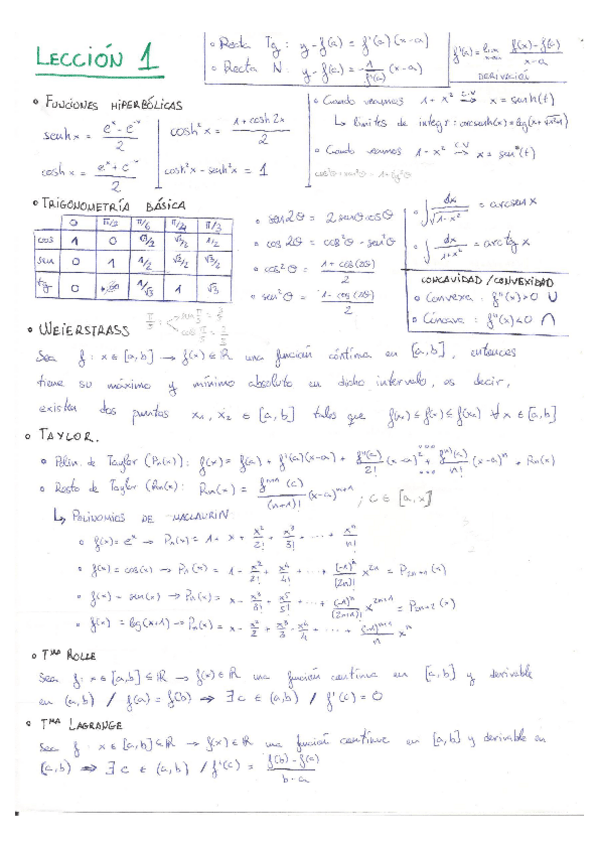 LECCIÓN 1
• Recta Tg: y - f(a) = f'(a)(x-a)
• Recta N: y - f(a) = -1/f'(a) (x-a)
f'(a) = lim f(x) - f(a) / x-a
DERIVACIÓN
• FUNCIONES HIPERBÓLICAS
senhx = e^x - e^-x / 2
cosh²x = 1 + cosh2x / 2
coshx = e^x + e^-x / 2
cosh²x - senh²x = 1
• Cuando veamos 1 + x² C.V → x = senh(t)
↳ límites de integr: arcsenh(x) = log(x + √x²+1)
• Cuando veamos 1 - x² C.V → x = sen(t)
• TRIGONOMETRÍA BÁSICA
0 π/2 π/6 π/4 π/3
cos 1 0 √3/2 √2/2 1/2
sen 0 1 1/2 √2/2 √3/2
tg 0 +∞ 1/√3 1 √3
• sen2θ = 2senθcosθ
• cos2θ = cos²θ - sen²θ
• cos²θ = 1 + cos(2θ) / 2
• sen²θ = 1 - cos(2θ) / 2
• ∫ dx / √1-x² = arcsenx
• ∫ dx / 1+x² = arctgx
CONCAVIDAD / CONVEXIDAD
• Convexa: f''(x) > 0 ∪
• Cóncava: f''(x) < 0 ∩
• WEIERSTRASS
Sea f: x ∈ [a,b] → f(x) ∈ ℝ una función cóntinua en [a,b], entonces
tiene su máximo y mínimo absoluto en dicho intervalo, es decir,
existen dos puntos x₁, x₂ ∈ [a,b] tales que f(x₁) ≤ f(x) ≤ f(x₂) ∀x ∈ [a,b]
• TAYLOR.
• Polin. de Taylor (Pn(x)): f(x) = f(a) + f'(a)(x-a) + f''(a)/2! (x-a)² + ... + f^n)(a)/n! (x-a)^n + Rn(x)
• Resto de Taylor (Rn(x): Rn(x) = f^n+1 (c) / (n+1)! (x-a)^n+1 ; c ∈ [a,x]
↳ POLINOMIOS DE MACLAURIN:
• f(x) = e^x → Pn(x) = 1 + x + x²/2! + x³/3! + ... + x^n/n!
• f(x) = cos(x) → Pn(x) = 1 - x²/2! + x⁴/4! + ... + (-1)^n/(2n)! x^2n = P2n+1(x)
• f(x) = sen(x) → Pn(x) = x - x³/3! + x⁵/5! + ... + (-1)^n/(2n+1)! x^2n+1 = P2n+2(x)
• f(x) = log(x+1) → Pn(x) = x - x²/2 + x³/3 - x⁴/4 + ... + (-1)^n+1/n x^n
• Tma ROLLE
Sea f: x ∈ [a,b] ⊆ ℝ → f(x) ∈ ℝ una función contínua en [a,b] y derivable
en (a,b) / f(a) = f(b) ⇒ ∃ c ∈ (a,b) / f'(c) = 0
• Tma LAGRANGE
Sea f: x ∈ [a,b] ⊆ ℝ → f(x) ∈ ℝ una función contínua en [a,b] y derivable en
(a,b) ⇒ ∃ c ∈ (a,b) / f'(c) = f(b) - f(a) / b-a